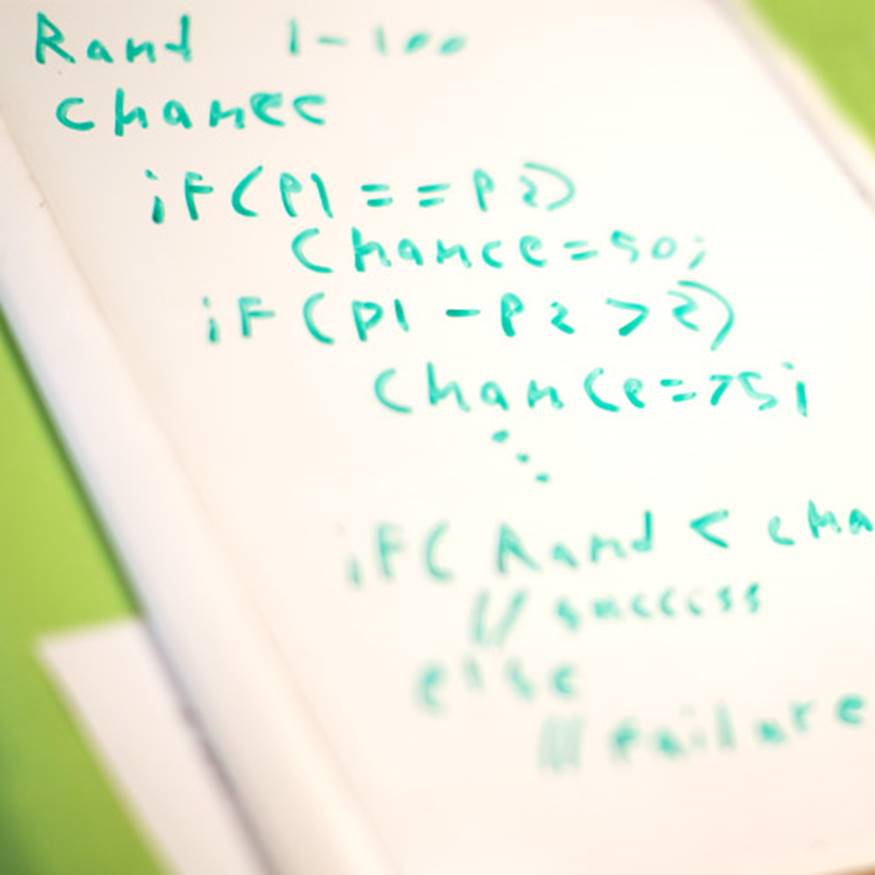 Rand 1-100
chance
if(p1==p2)
Chance=50;
if(p1-p2>2)
Chance=75;
...
if(Rand<cha
// success
else
// failure